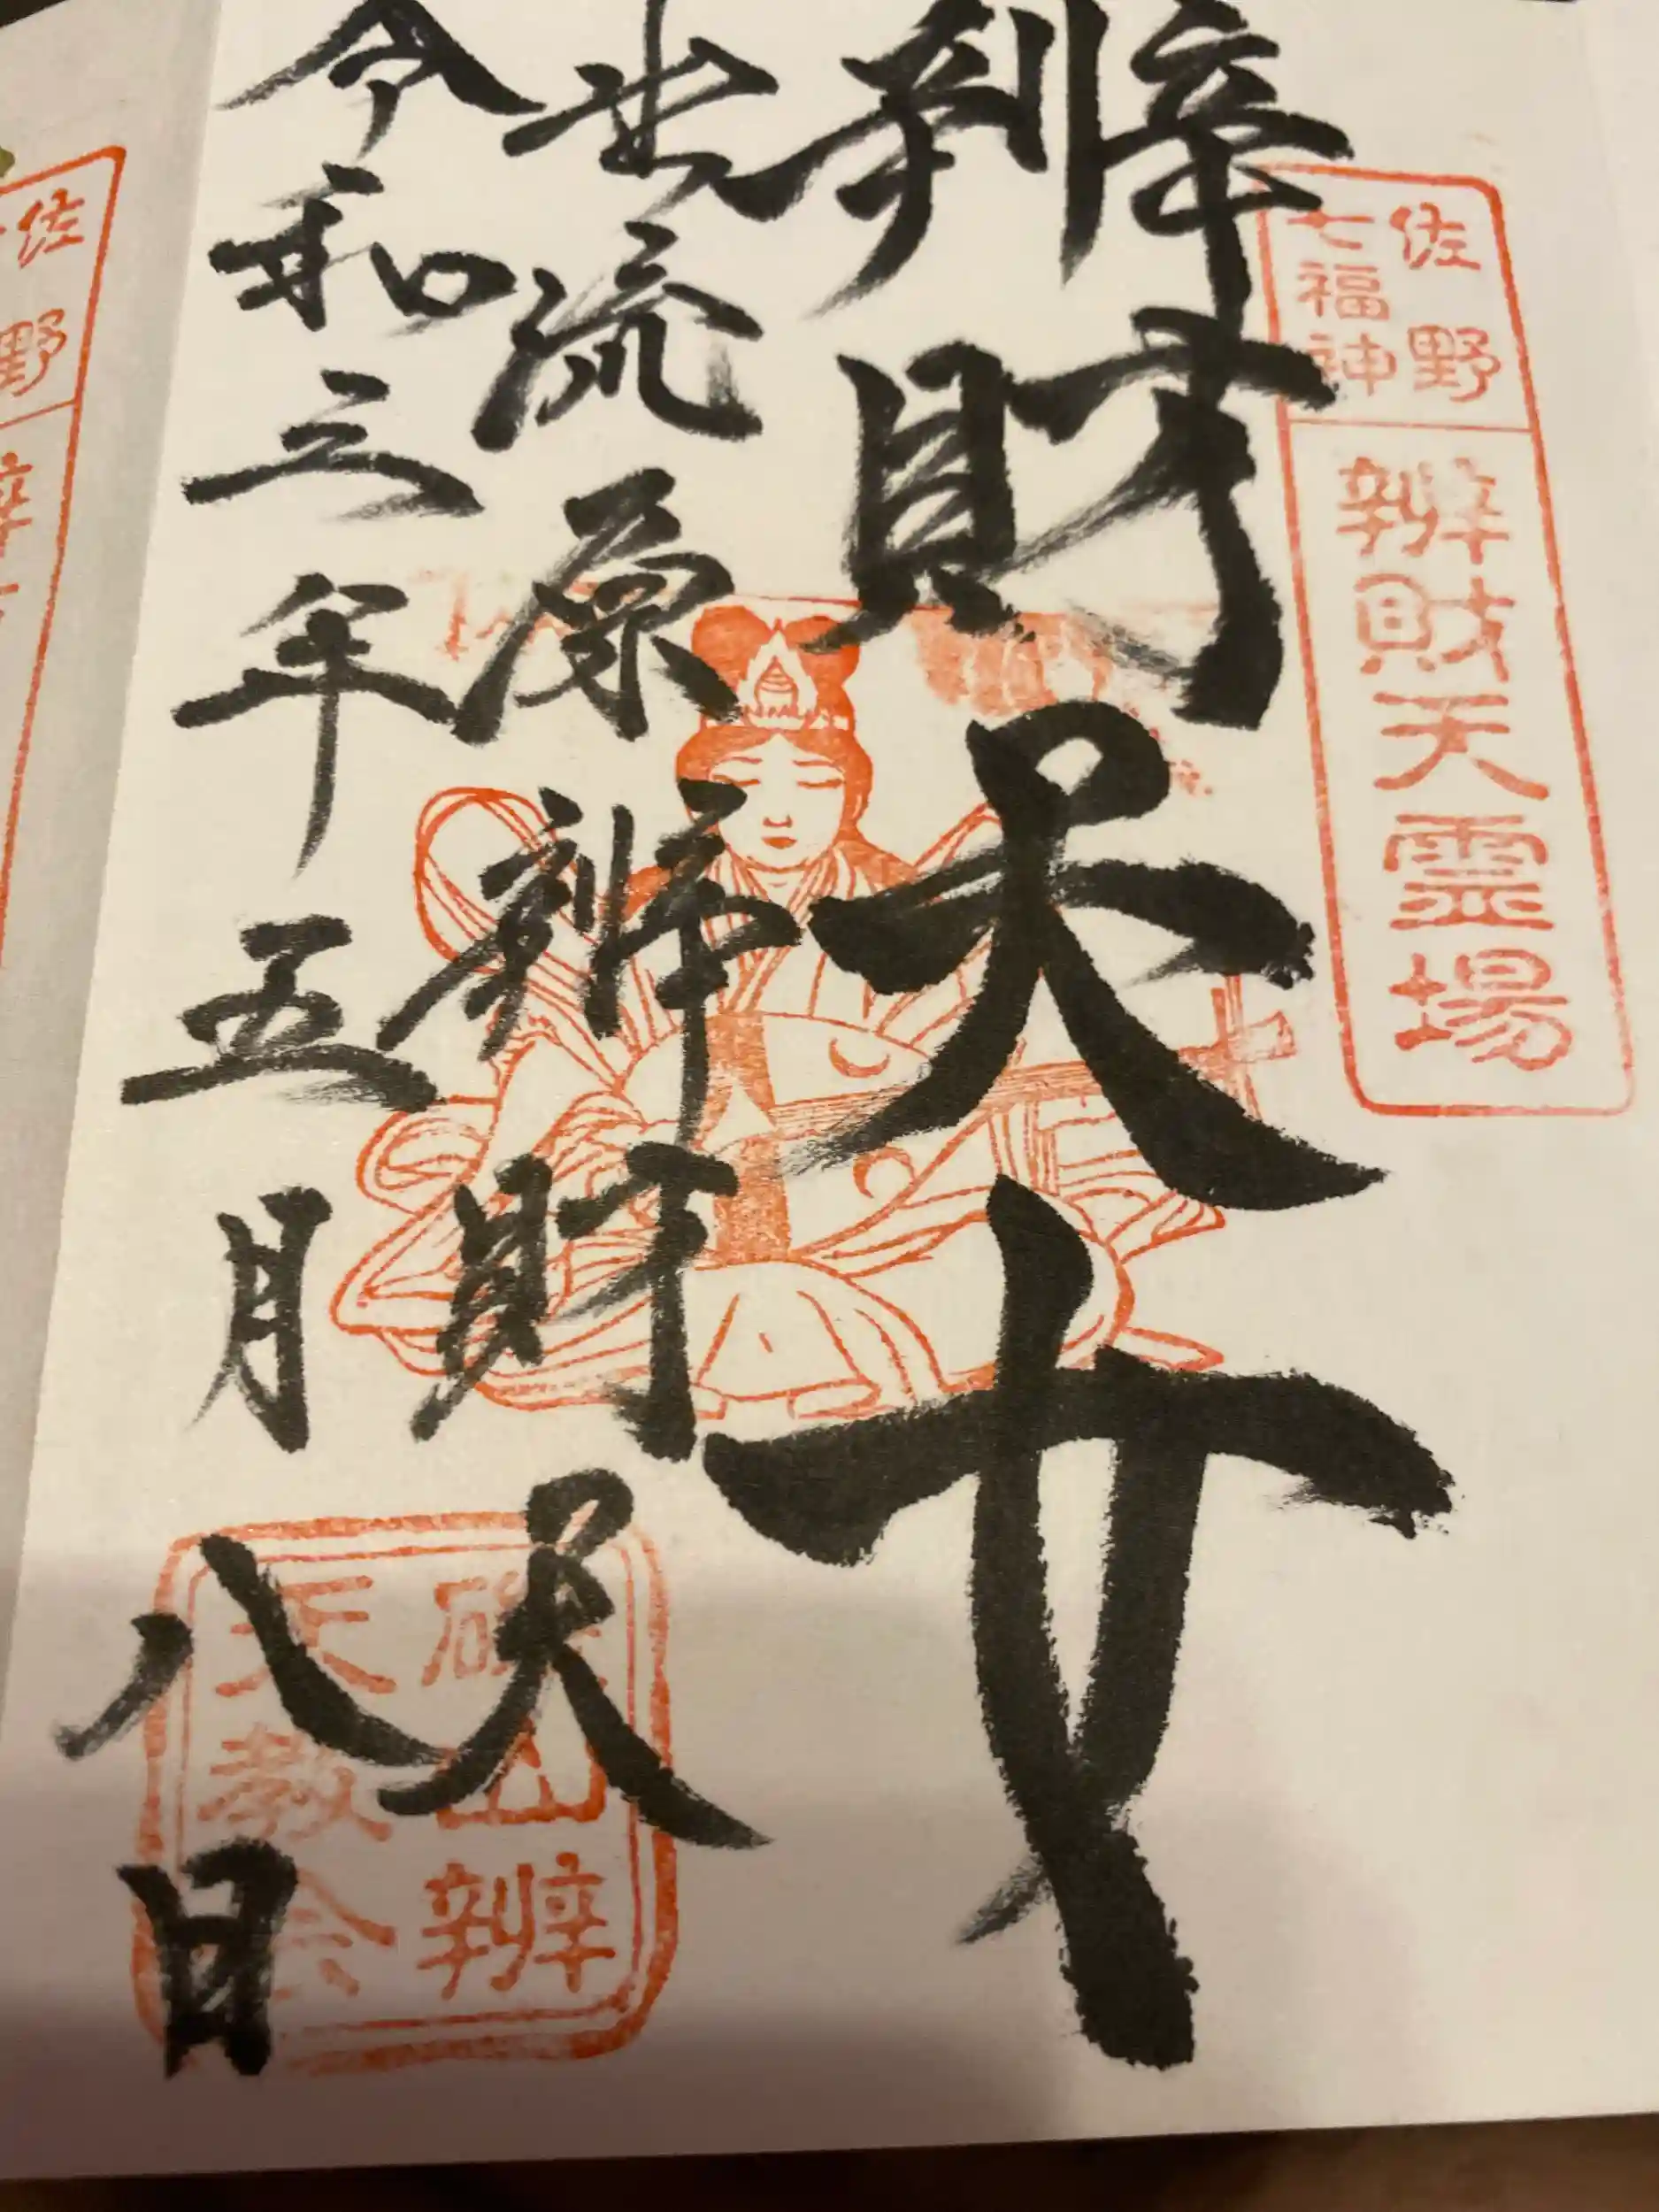 佐野
七福神
辨財天霊場
辨財天女
出流原辨財天
令和三年五月八日
磯山辨
天教会
佐野